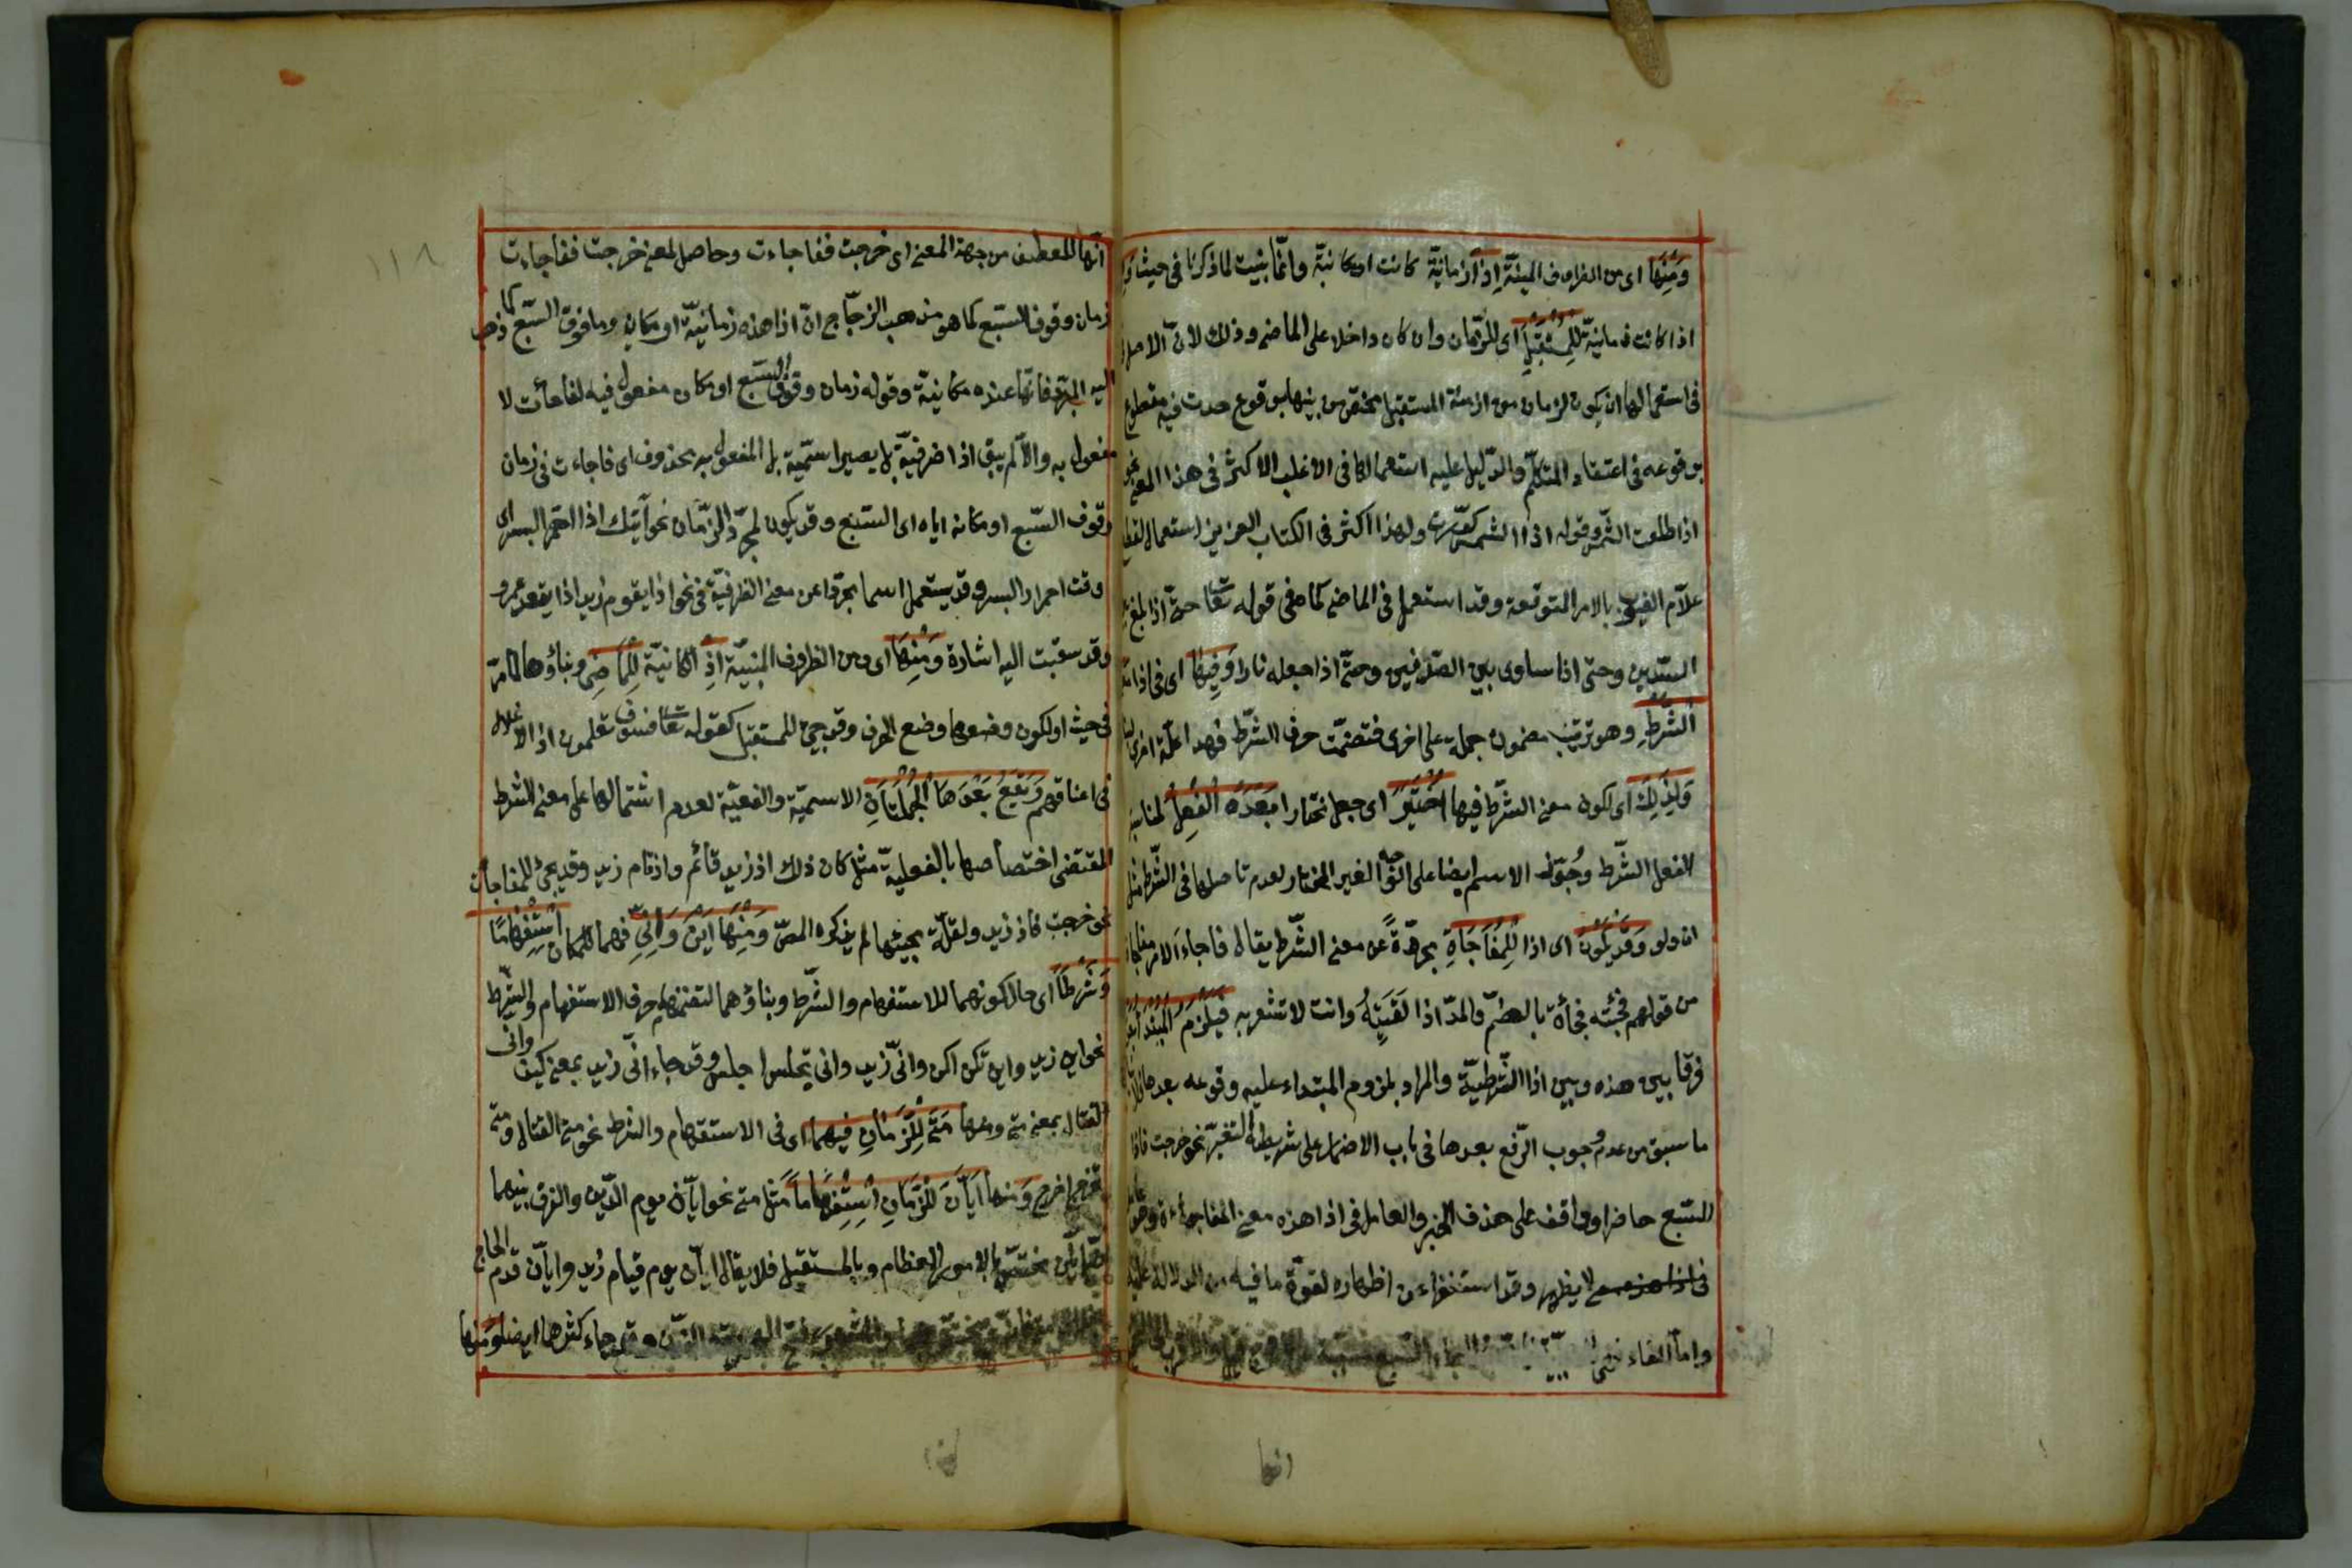 وَمِنْهَا اى من الظروف المبنيّة اِذَا زمانيّة كانت او مكانيّة وانّما بنيت لما ذكرنا فى حيث
اذا كانت زمانيّة لِلْمُسْتَقْبِلِ اى للزّمان وان كان داخلا على الماضى وذلك لانّ الاصل
فى استعمالها ان يكون لزمان من ازمنة المستقبل مختص من بينها بوقوع حدث فيه مقطوع
بوقوعه فى اعتقاد المتكلّم والدّليل عليه استعمالها فى الاغلب الاكثر فى هذا المعنى نحو
اذا طلعت الشّمس وقوله اذا الشمس كوّرت ولهذا اكثر فى الكتاب العزيز استعمالها لقطع
علاّم الغيوب بالامر المتوقعة وقد استعمل فى الماضى كما فى قوله تعا حتّى اذا بلغ بين
السّدين وحتى اذا ساوى بين الصّدفين وحتّى اذا جعله نارا وَفِيهَا اى فى اذا
اَلشَّرْطِ وهو ترتيب مضمون جملة على اخرى فتضمّنت حرف الشّرط فهذا علّة اخرى
وَلِذَلِكَ اى لكون معنى الشّرط فيها اُخْتِيرَ اى جعل مختارا بَعْدَهُ الْفِعْلُ لمناسبة
الفعل الشّرط وجُوّز الاسم ايضا على الوجه الغير المختار لعدم تاصلها فى الشّرط مثل
ان ولو وَقَدْ يَكُونُ اى اذا لِلْمُفَاجَاةِ مجرّدةً عن معنى الشّرط يقال فاجاء الامر مفاجاة
من قولهم فجئته فجأة بالضمّ والمدّ اذا لَقَيتَهُ وانت لا تشعر به فَيَلْزَمُ الْمُبْتَدَأُ
فرقا بين هذه وبين اذا الشّرطيّة والمراد بلزوم المبتداء عليه وقوعه بعدها
ما سبق من عدم وجوب الرّفع بعدها فى باب الاضمار على شريطة التفسير نحو خرجت فاذا
السّبع حاضر او واقف على حذف الخبر والعامل فى اذا هذه معنى المفاجأة وهو
لا يظهر وقد استغنوا عن اظهاره لقوّة ما فيه من الدلالة عليه
وامّا الفاء
انّها للعطف من جهة المعنى اى خرجت ففاجاءت وحاصل المعنى خرجت ففاجاءت
زمان وقوف السّبع كما هو مذهب الزجّاج انّ اذا هذه زمانيّة او مكان وما فوق السّبع كما ذهب
اليه المبرّد فانّها عنده مكانيّة وقوله زمان وقوف السّبع او مكان مفعول فيه لفاجأت لا
مفعول به والاّ لم يبق اذا ظرفيّة بل يصير اسميّة بل المفعول به محذوف اى فاجاءت فى زمان
وقوف السّبع او مكانه اياه اى السّبع وقد يكون لمجرّد الزّمان نحو آتيك اذا احمرّ البسر اى
وقت احمرار البسر وقد يستعمل اسما مجرّدا عن معنى الظرفيّة فى نحو اذا يقوم زيد اذا يقعد عمرو
وقد سبقت اليه اشارة وَمِنْهَا اى ومن الظروف المبنيّة اِذِ الكانيّة لِلْمَاضِى وبناؤها لما مرّ
فى حيث او لكون وضعها وضع الحرف وقد يجئ للمستقبل كقوله تعا فسوف تعلمون اذ الاغلال
فى اعناقهم وَيَقَعُ بَعْدَهَا الْجُمْلَتَانِ الاسميّة والفعليّة لعدم اشتمالها على معنى الشّرط
المقتضى اختصاصها بالفعليّة مثل كان ذلك اذ زيد قائم واذ قام زيد وقد يجئ للمفاجأة
نحو خرجت فاذ زيد ولقلّة مجيئها لم يذكره المصّ وَمِنْهَا اَيْنَ وَاَنّى فهما للمكان اسْتِفْهَامًا
وَشَرْطًا اى حال كونهما للاستفهام والشّرط وبناؤهما لتضمنهما حرف الاستفهام والشّرط
نحو اين زيد واين تكن اكن وانّى زيد وانى تجلس اجلس وقد جاء انّى زيد بمعنى كيف وانى
القتال بمعنى متى ومنها مَتَى لِلزَّمَانِ فِيهِمَا اى فى الاستفهام والشرط نحو متى القتال ومتى
تخرج اخرج وَمنها اَيَّانَ لِلزَّمَانِ اسْتِفْهَاماً مثل متى نحو ايّان يوم الدّين والفرق بينهما
ايّان مختصّ بالامور العظام وبالمستقبل فلا يقال ايّان يوم قيام زيد وايّان قدم الحاج
وقد جاء كثرها ايضا وَمنها